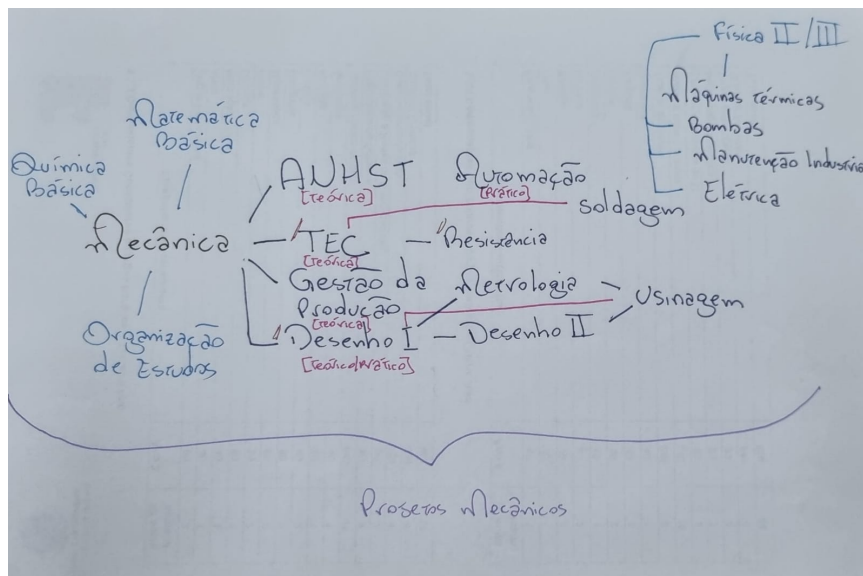 Física II/III
Máquinas térmicas
Bombas
Manutenção Industria
Elétrica
Matemática
Básica
Química
Básica
Mecânica
Organização
de Estudos
ANHST
[teórica]
Automação
[Prático]
Soldagem
TEC
[teórica]
Resistência
Gestão da
Produção
[teórica]
Metrologia
Usinagem
Desenho I
[teórico/Prático]
Desenho II
Projetos Mecânicos